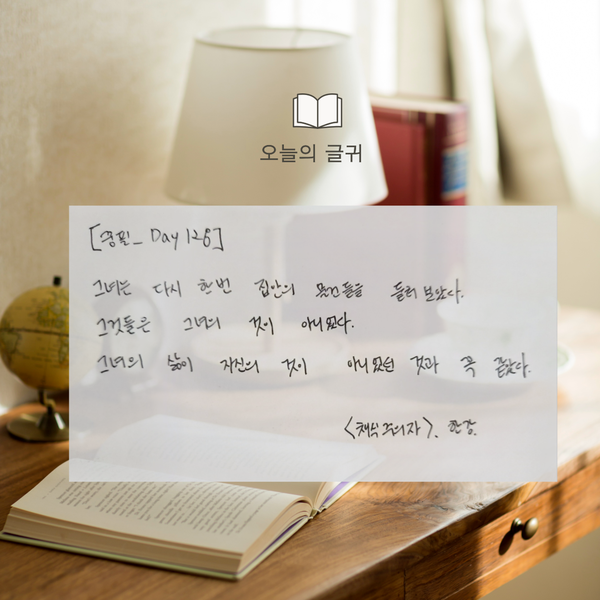 오늘의 글귀
[공필_ Day 128]
그녀는 다시 한번 집안의 물건들을 둘러 보았다.
그것들은 그녀의 것이 아니었다.
그녀의 삶이 자신의 것이 아니었던 것과 꼭 같았다.
<채식주의자>. 한강.